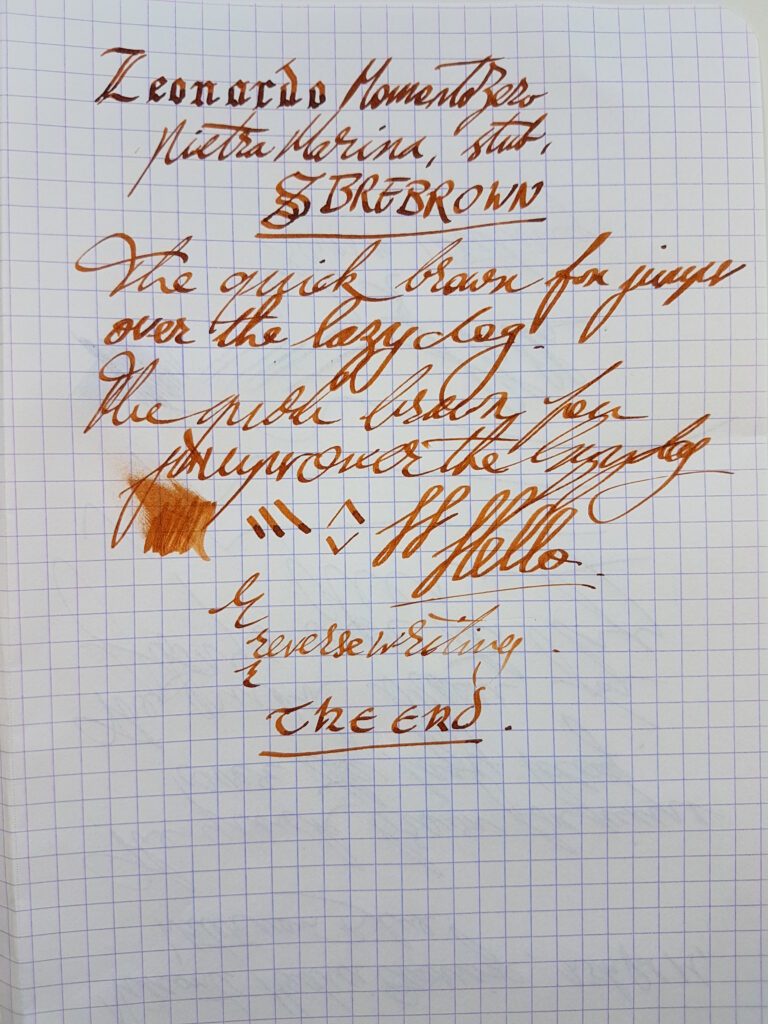 Leonardo Momento Zero
Pietra Marina, stub.
SBREBROWN
The quick brown fox jumps
over the lazy dog.
The quick brown fox
jumps over the lazy dog
Hello.
reverse writing.
The End.